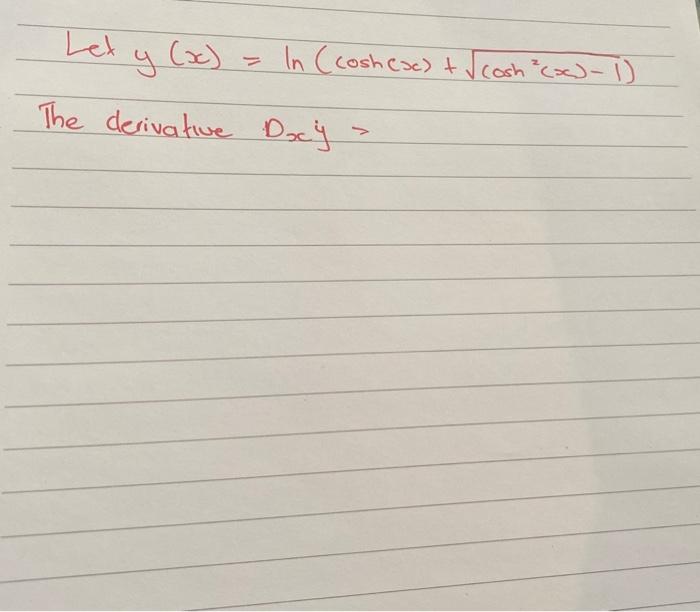 Let y (x) = ln (cosh(x) + √(cosh²(x) - 1))
The derivative Dxy =